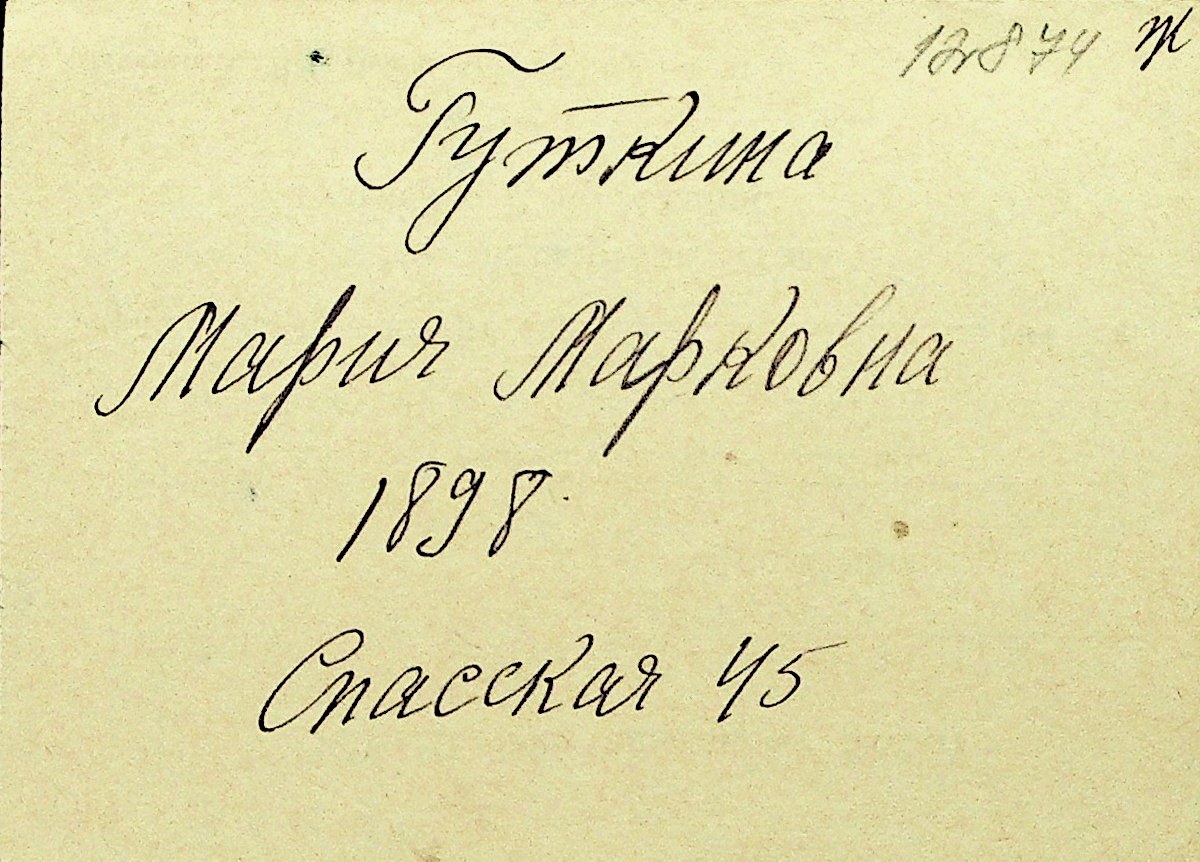 12874 Ж
Гуткина
Мария Марковна
1898
Спасская 45